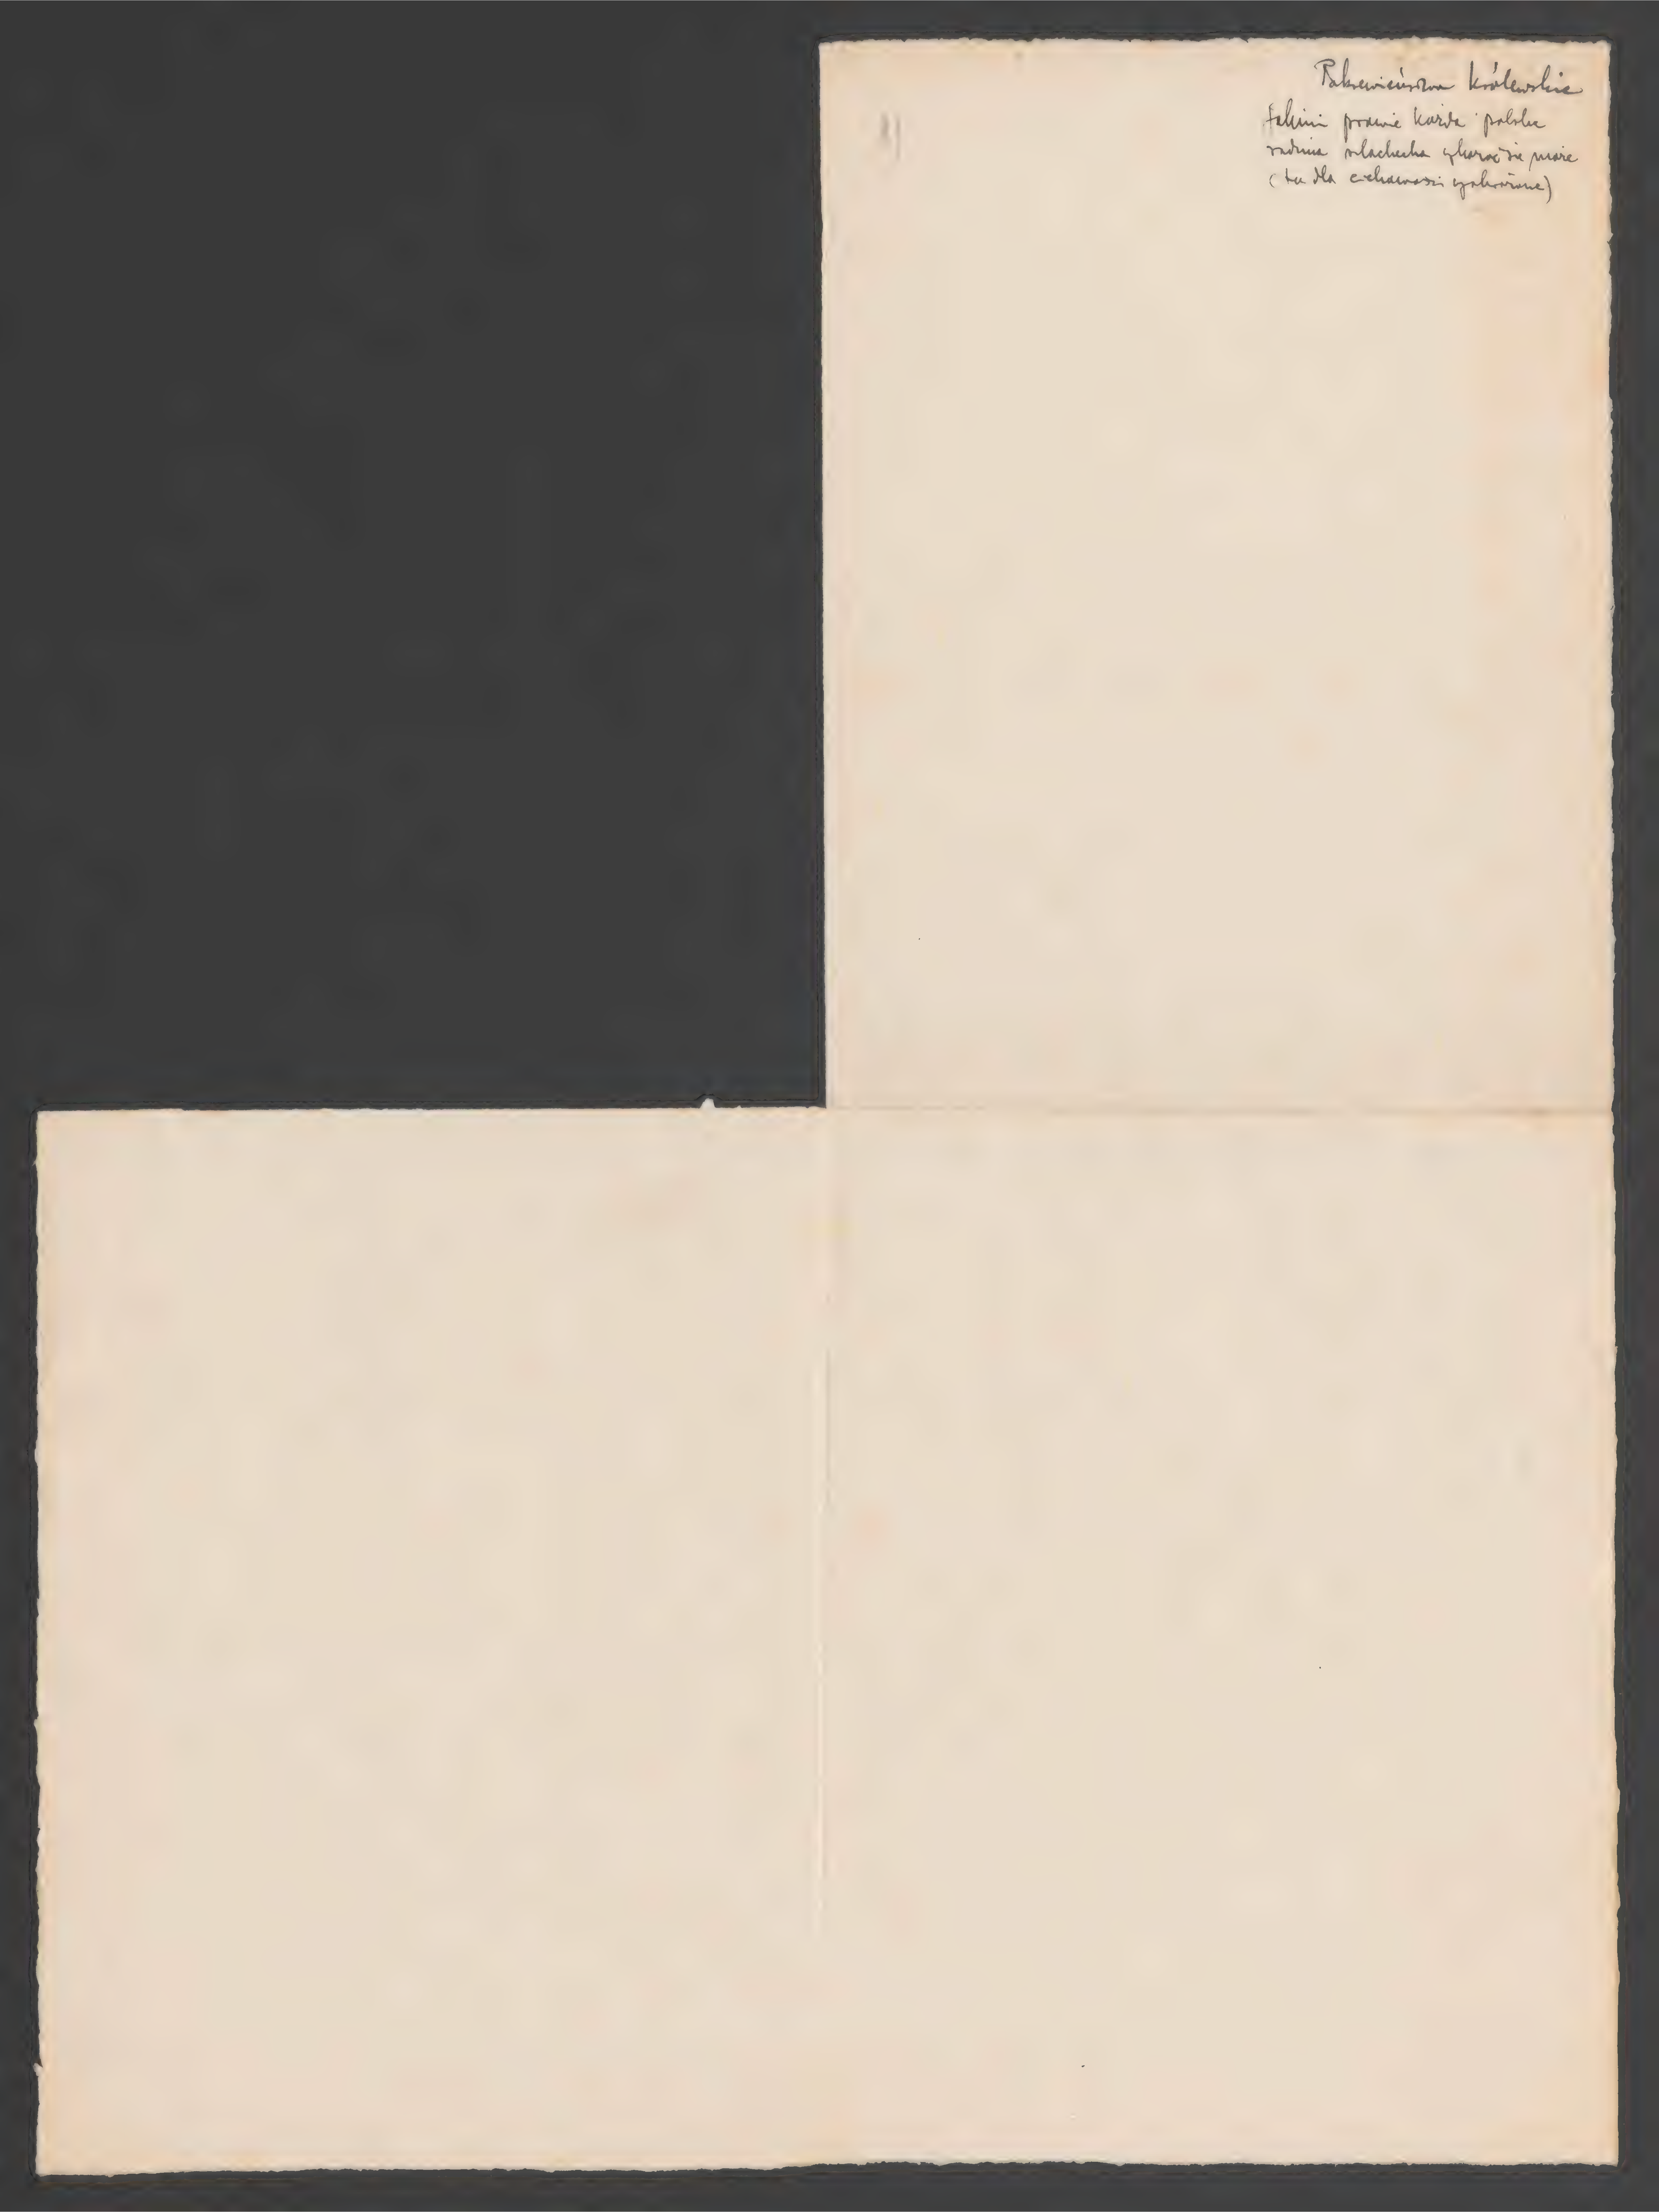 Pokrewieństwa królewskie
takimi prawie każda polska
rodzina szlachecka wykazać się może
(tu dla ciekawości wykazane)